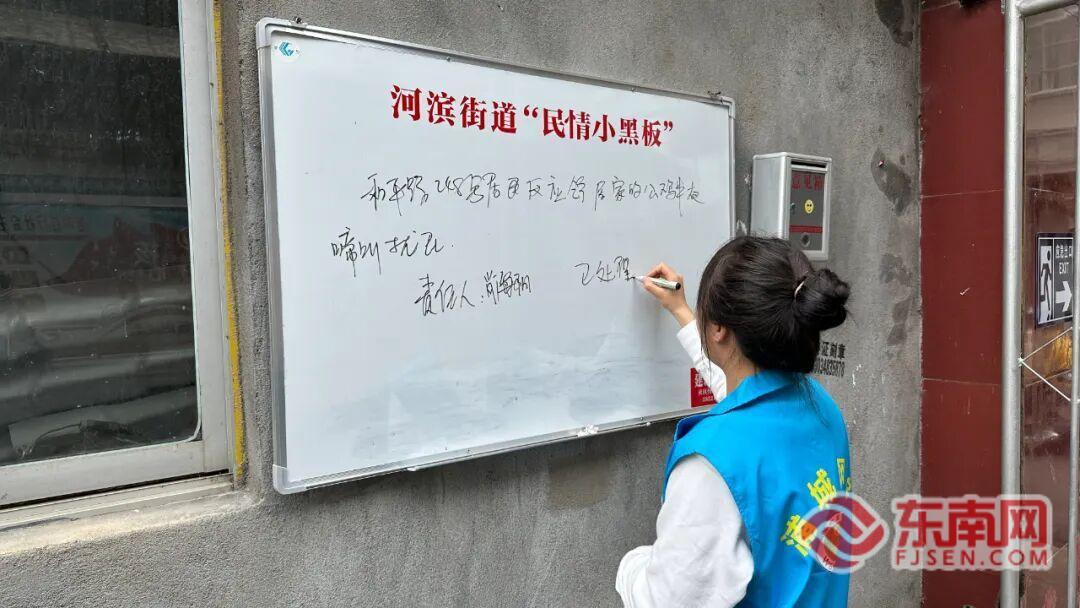 河滨街道“民情小黑板”
和平路248号居民反应邻居家的公鸡半夜
啼叫扰民.
责任人:
已处理
意见箱
EXIT
证刻章
东南网
FJSEN.COM